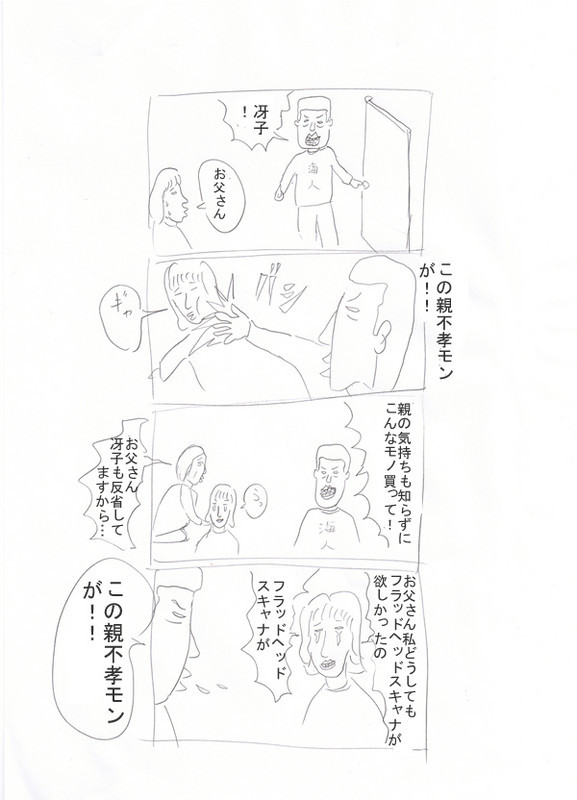 冴子
！
海人
お父さん
この親不孝モン
が！！
バシ
ギャ
親の気持ちも知らずに
こんなモノ買って！
海人
うっ
お父さん
冴子も反省して
ますから…
お父さん私どうしても
フラッドヘッドスキャナが
欲しかったの
フラッドヘッド
スキャナが
この親不孝モン
が！！